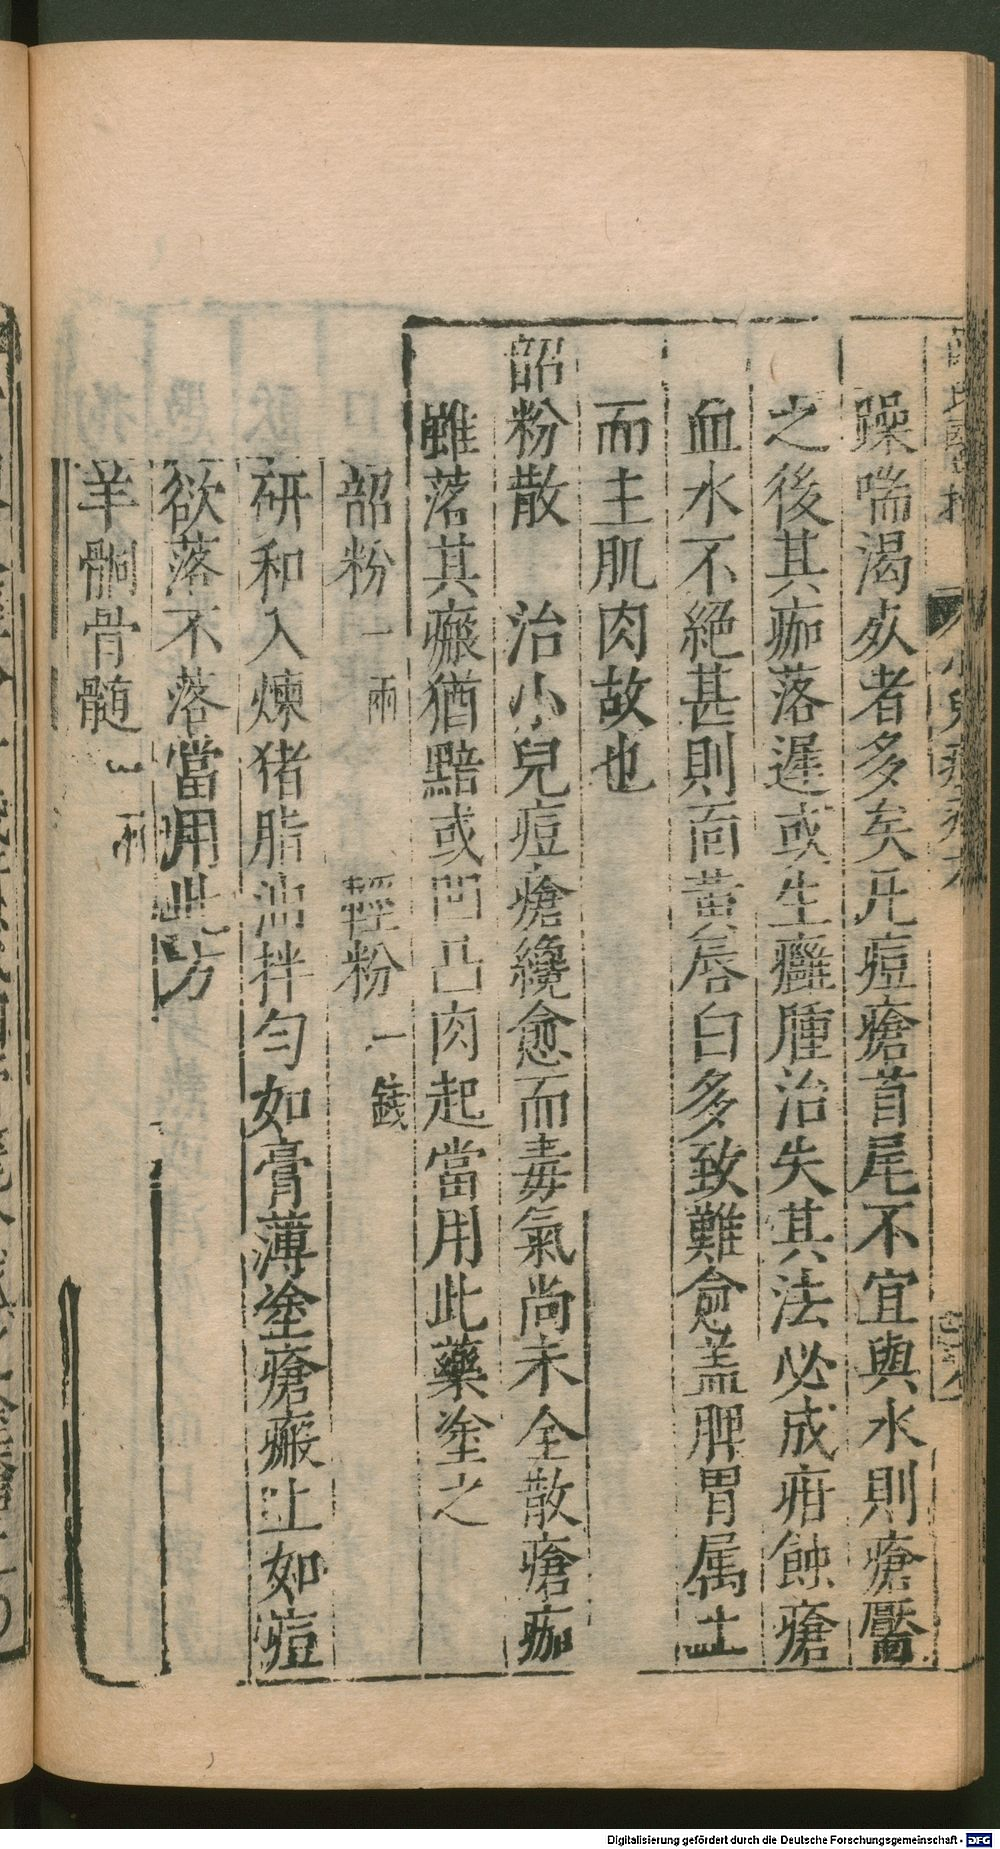 躁喘渴死者多矣凡痘瘡首尾不宜與水則瘡靨
之後其痂落遲或生癰腫治失其法必成疳蝕瘡
血水不絕甚則面黃唇白多致難愈盖脾胃属土
而主肌肉故也
韶粉散　治小兒痘瘡纔愈而毒氣尚未全散瘡痂
雖落其瘢猶黯或凹凸肉起當用此藥塗之
韶粉一兩　輕粉一錢
研和入煉猪脂油拌勻如膏薄塗瘡瘢上如痘
欲落不落當用此方
羊䯘骨髓一兩
小兒
Digitalisierung gefördert durch die Deutsche Forschungsgemeinschaft - DFG